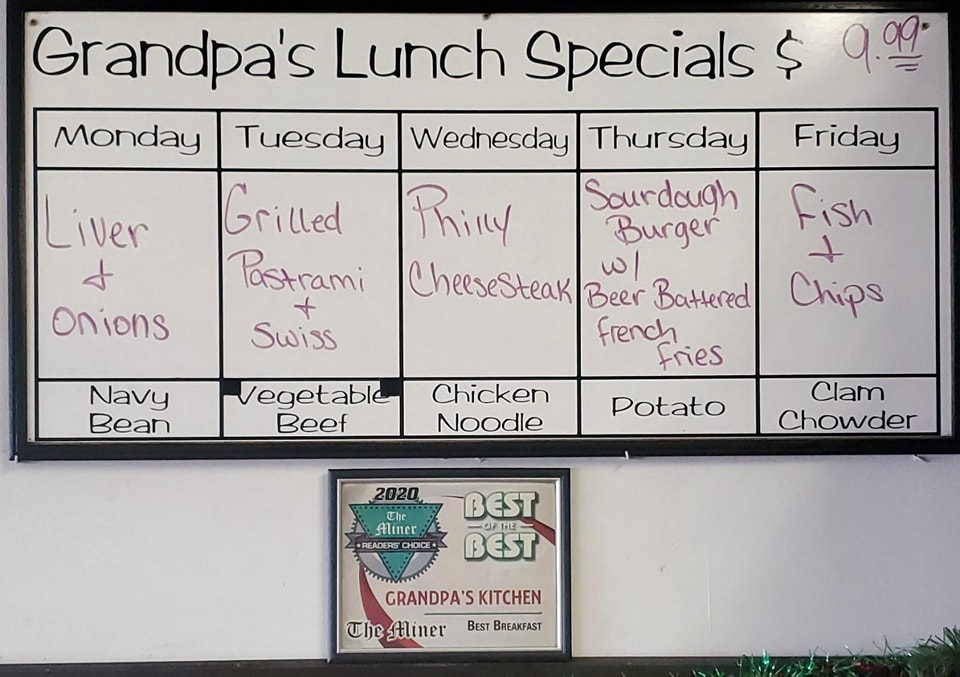 Grandpa's Lunch Specials $ 9.99
Monday
Tuesday
Wednesday
Thursday
Friday
Liver
+
Onions
Grilled
Pastrami
+
Swiss
Philly
CheeseSteak
Sourdough
Burger
w/
Beer Battered
French
Fries
Fish
+
Chips
Navy
Bean
Vegetable
Beef
Chicken
Noodle
Potato
Clam
Chowder
2020
The
Miner
READERS' CHOICE
BEST
OF THE
BEST
GRANDPA'S KITCHEN
The Miner
BEST BREAKFAST